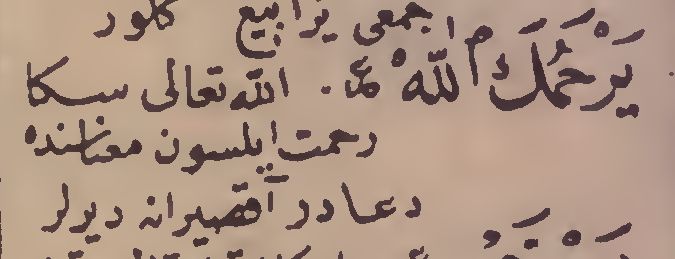 جمعی یرابیع کلور
یَرْحَمُكَ اللّٰهْ ع. اللّه تعالی سكا
رحمت ایلسون معناسنده
دعا در آقصیرانه دیرلر